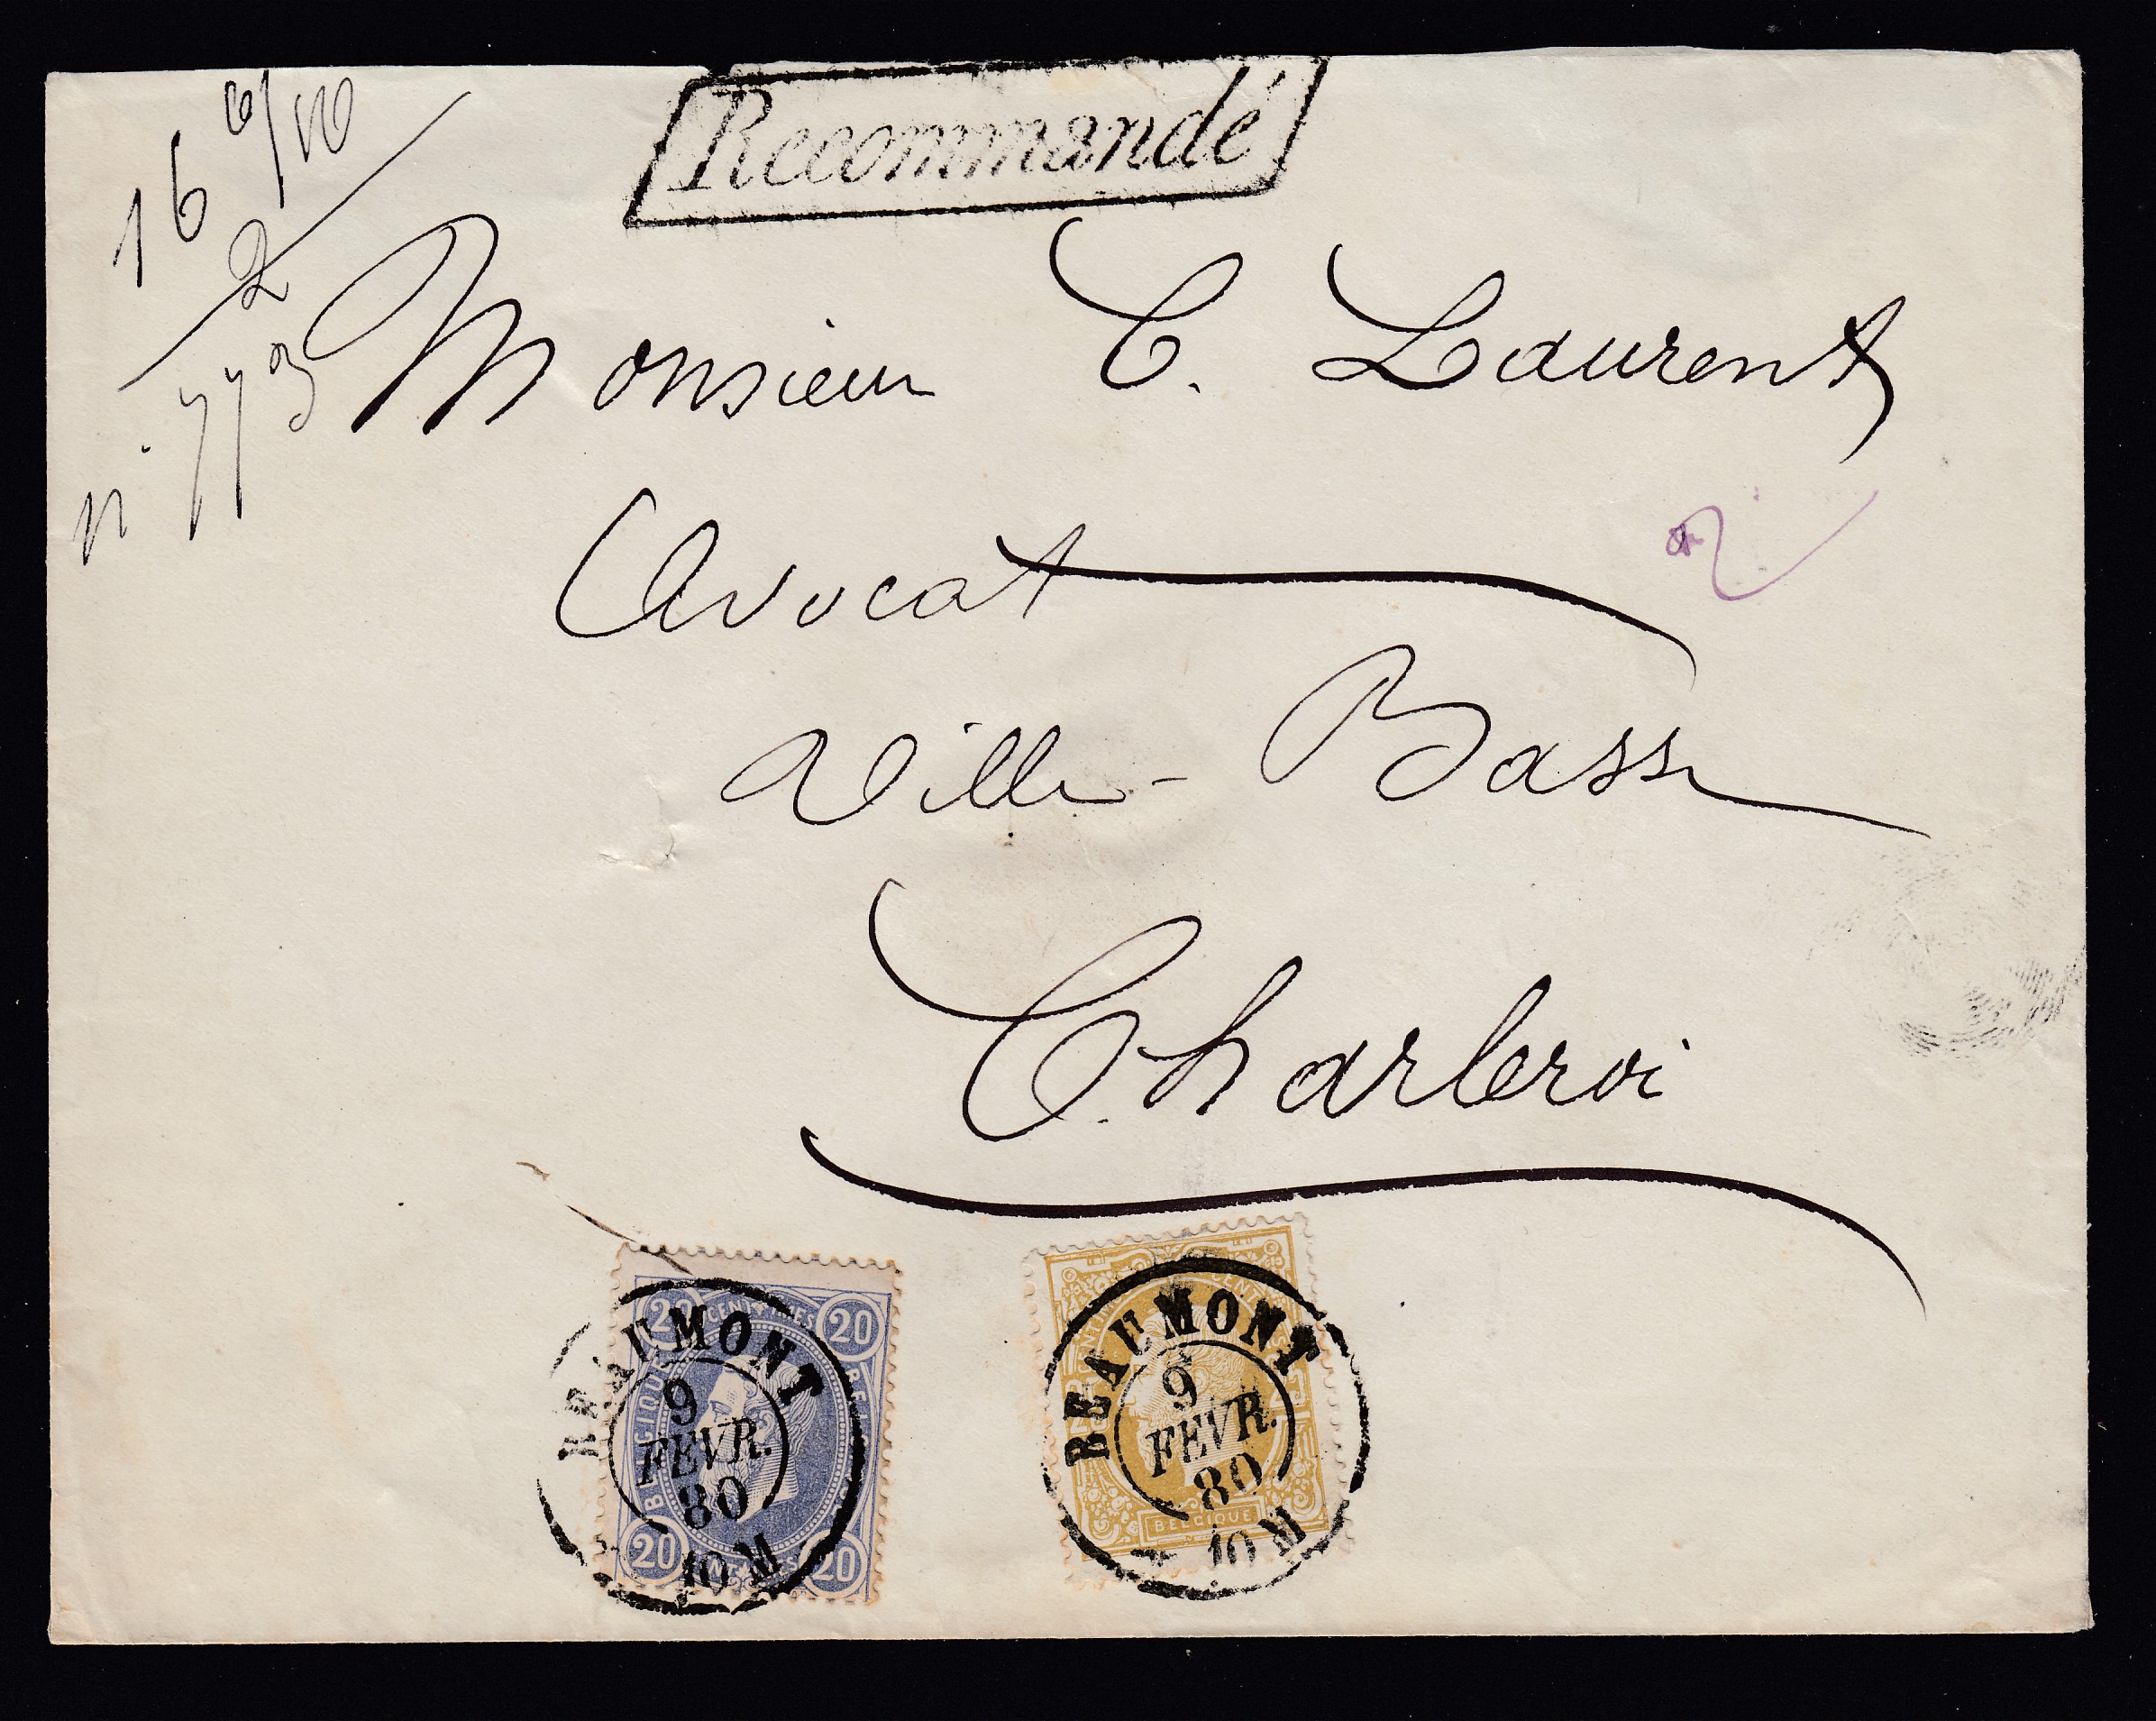 Recommandé
16 6/10
2
n. 773
Monsieur C. Laurent
Avocat
Ville-Basse
Charleroi
20 CENTIMES 20
BELGIQUE
20 CENTIMES 20
BEAUMONT
9
FEVR.
80
10 M
BEAUMONT
9
FEVR.
80
10 M
BELGIQUE